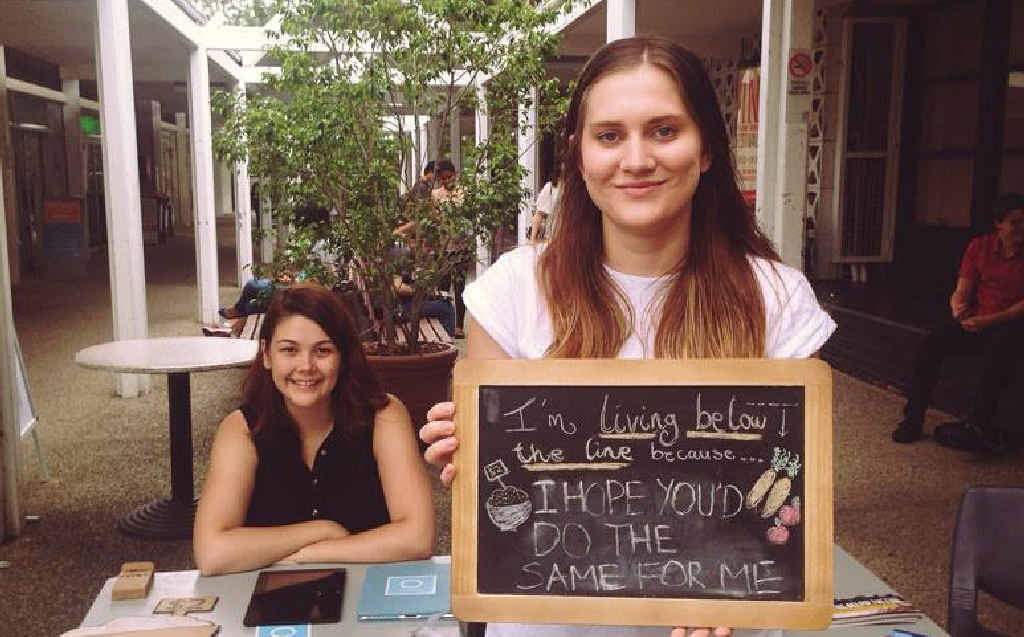 I'm living below
the line because...
I HOPE YOU'D
DO THE
SAME FOR ME